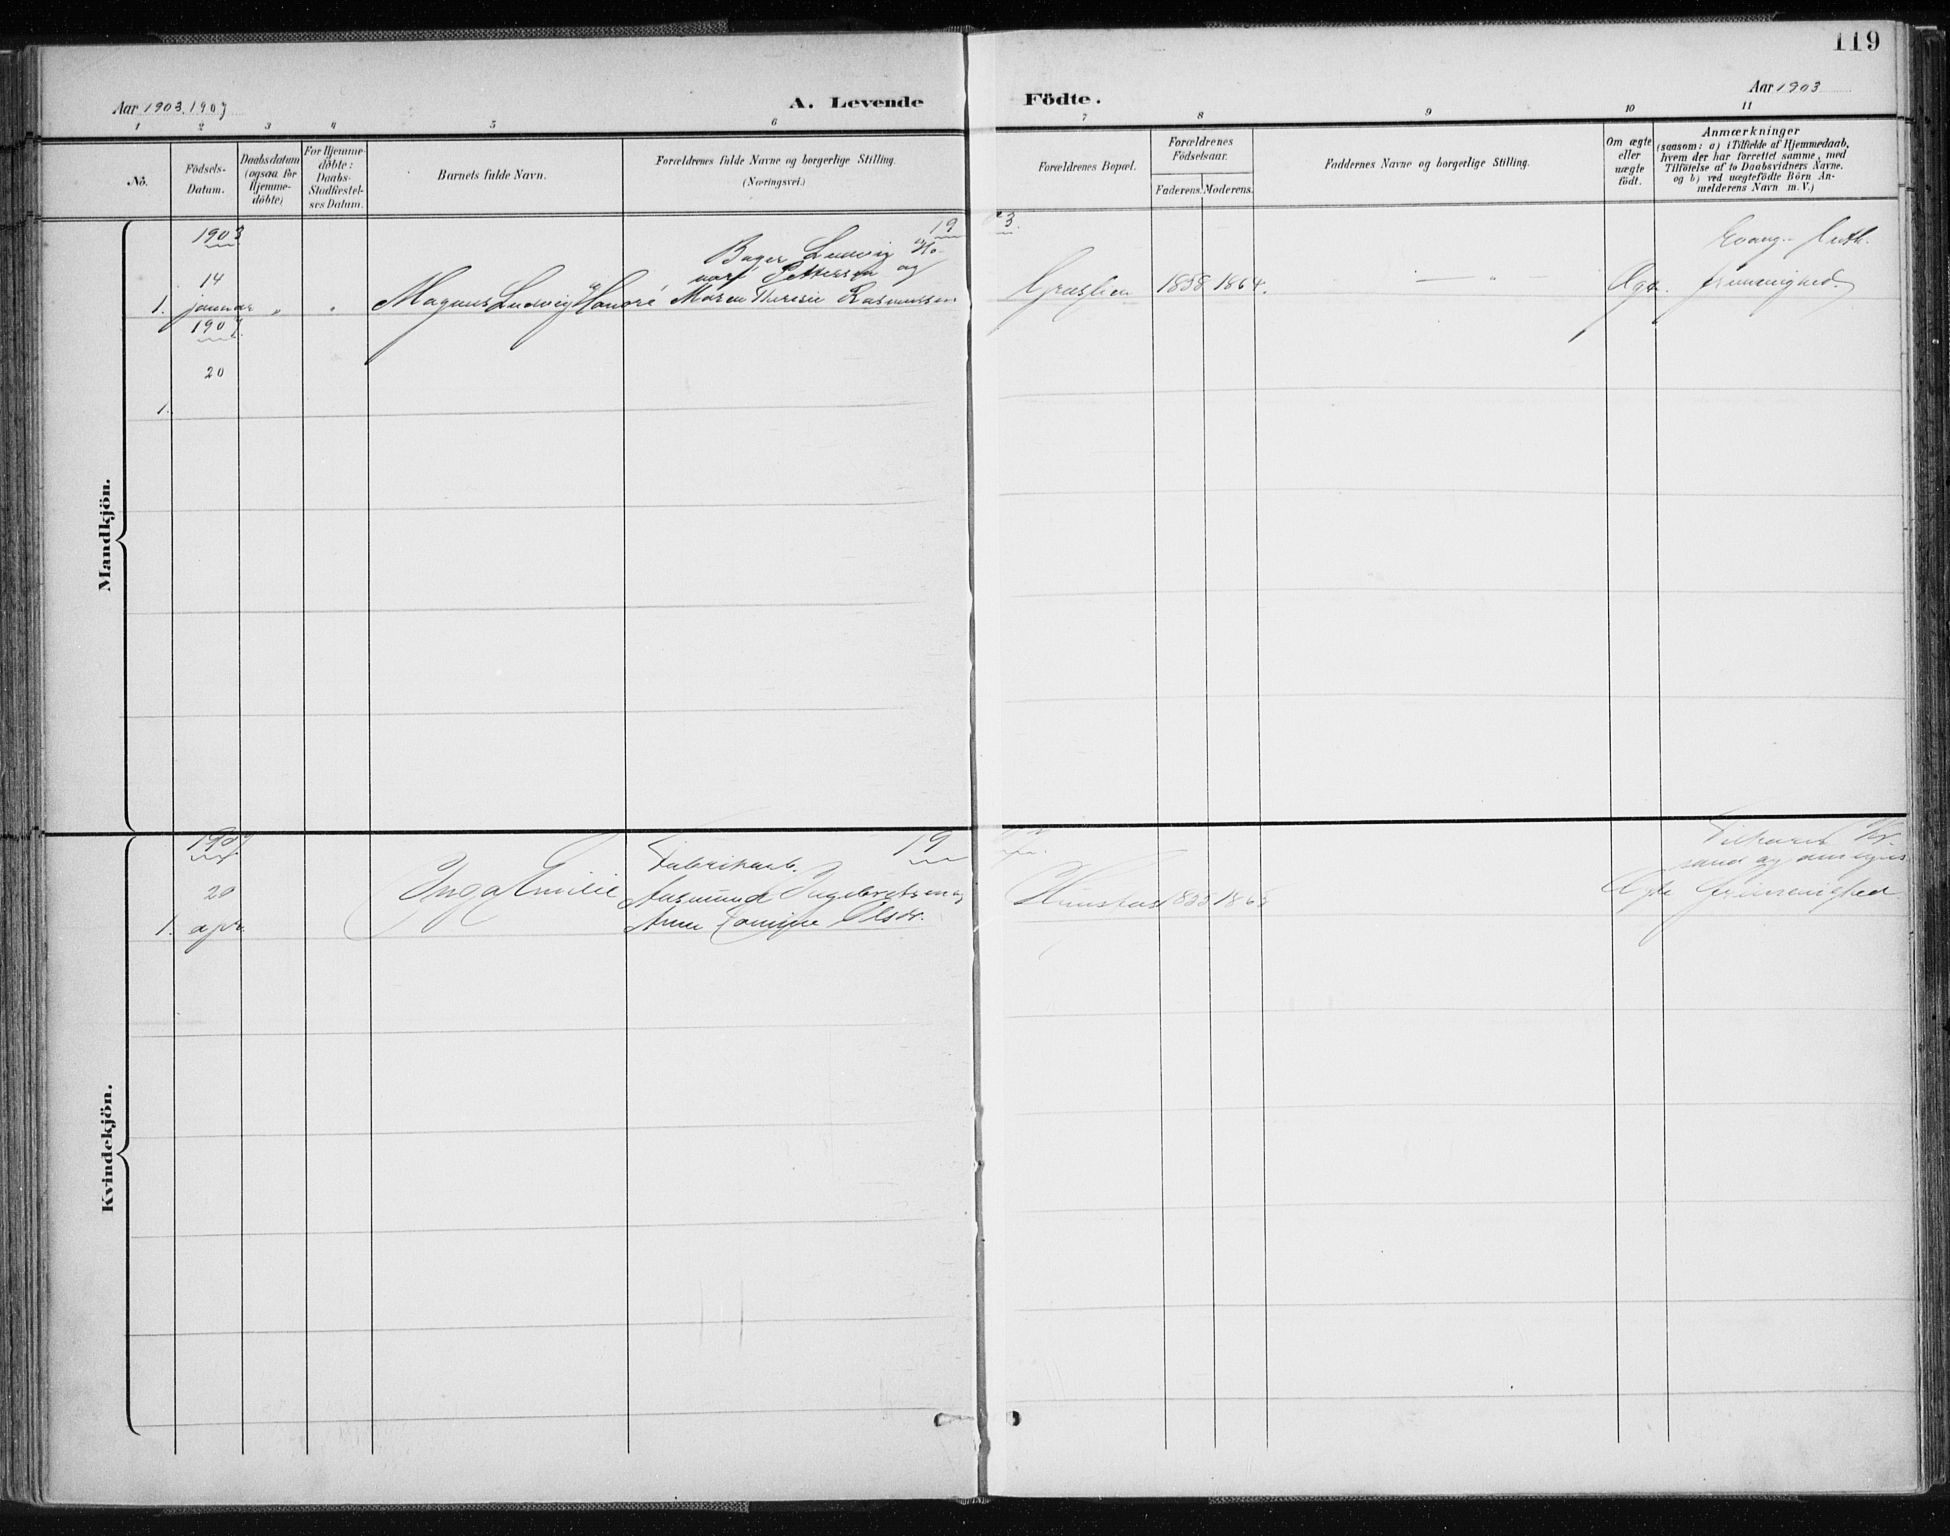 119
Aar 1903. 1907
A. Levende
Födte.
Aar 1903
1 2 3 4 5 6 7 8 9 10 11
Nö.
Födsels-
Datum.
Daabsdatum
(ogsaa for
Hjemme-
döbte)
For Hjemme-
döbte:
Daabs-
Stadfæstel-
ses Datum.
Barnets fulde Navn.
Forældrenes fulde Navne og borgerlige Stilling.
(Næringsvei.)
Forældrenes Bopæl.
Forældrenes
Födselsaar.
Faderens. Moderens.
Faddernes Navne og borgerlige Stilling.
Om ægte
eller
uægte
födt.
Anmærkninger
(saasom: a) i Tilfælde af Hjemmedaab,
hvem der har forrettet samme, med
Tilföielse af to Daabsvidners Navne.
og b) ved uægtefödte Börn An-
melderens Navn m. V.)
Mandkjön.
1903
19
3.
Bager Ludvig
Evang. Luth.
14
Pettersen og
1. januar " " Magnus Ludvig Maren Theresie Rasmussen
1858 1864. — " Ægte. frimenighed.
1907
20
1.
Kvindekjön.
1907
19
Fabrikarb.
20
Inga Emilie
Aasmund Ingebretsen og
Hunsfos 1855
Ægte frimenighed
1. apr.
Anne Olsdr.